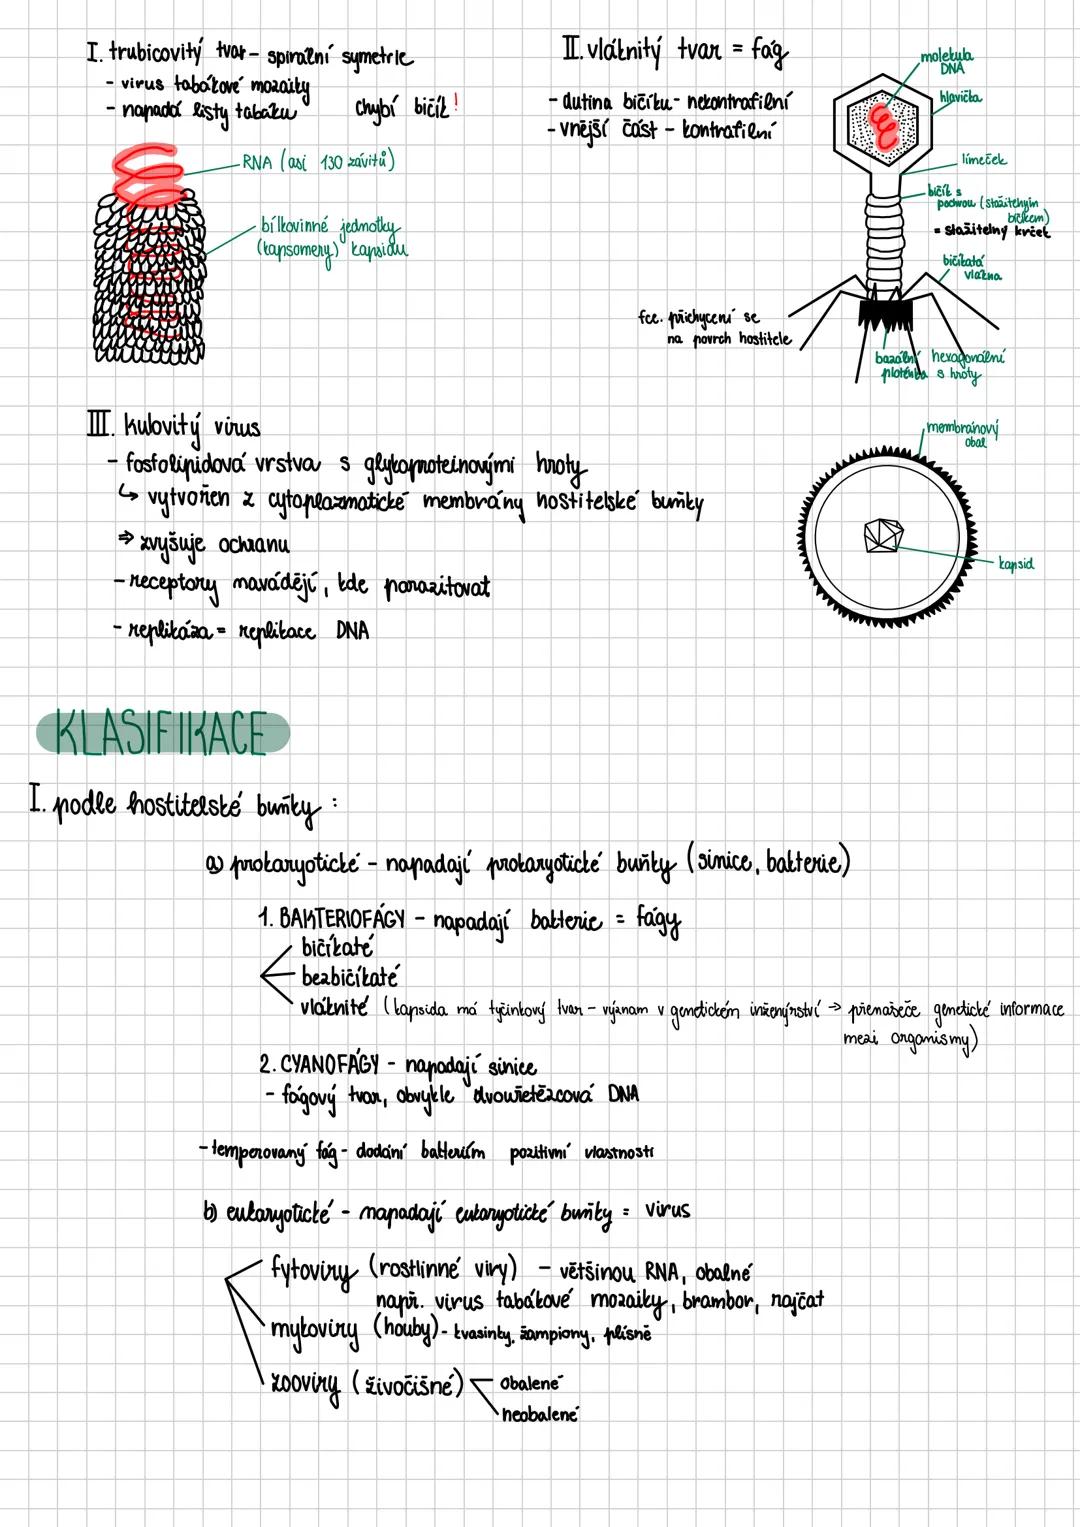 I. trubicovitý tvar - spirální symetrie
- virus tabákové mozaiky
- napadá listy tabáku
chybí bičík!
RNA (asi 130 závitů)
bílkovinné jednotky
(kapsomery) kapsidu
II. vláknitý tvar = fág
- dutina bičíku - nekontrafilní
- vnější část - kontrafilní
molekula
DNA
hlavička
límeček
bičík s
pochvou (stažitelným
bičíkem)
= stažitelný krček
bičíkatá
vlákna
fce. přichycení se
na povrch hostitele
bazální hexagonální
ploténka s hroty
III. kulovitý virus
- fosfolipidová vrstva s glykoproteinovými hroty
↳ vytvořen z cytoplazmatické membrány hostitelské buňky
⇒ zvyšuje ochranu
- receptory navádějí, kde parazitovat
- replikáza = replikace DNA
membránový
obal
kapsid
KLASIFIKACE
I. podle hostitelské buňky:
a) prokaryotické - napadají prokaryotické buňky (sinice, bakterie)
1. BAKTERIOFÁGY - napadají bakterie = fágy
bičíkaté
bezbičíkaté
vláknité (kapsida má tyčinkový tvar - význam v genetickém inženýrství → přenašeče genetické informace
mezi organismy)
2. CYANOFÁGY - napadají sinice
- fágový tvar, obvykle dvouřetězcová DNA
- temperovaný fág - dodání bakteriím pozitivní vlastnosti
b) eukaryotické - napadají eukaryotické buňky = virus
fytoviry (rostlinné viry) - většinou RNA, obalné
např. virus tabákové mozaiky, brambor, rajčat
mykoviry (houby) - kvasinky, žampiony, plísně
zooviry (živočišné)
obalené
neobalené